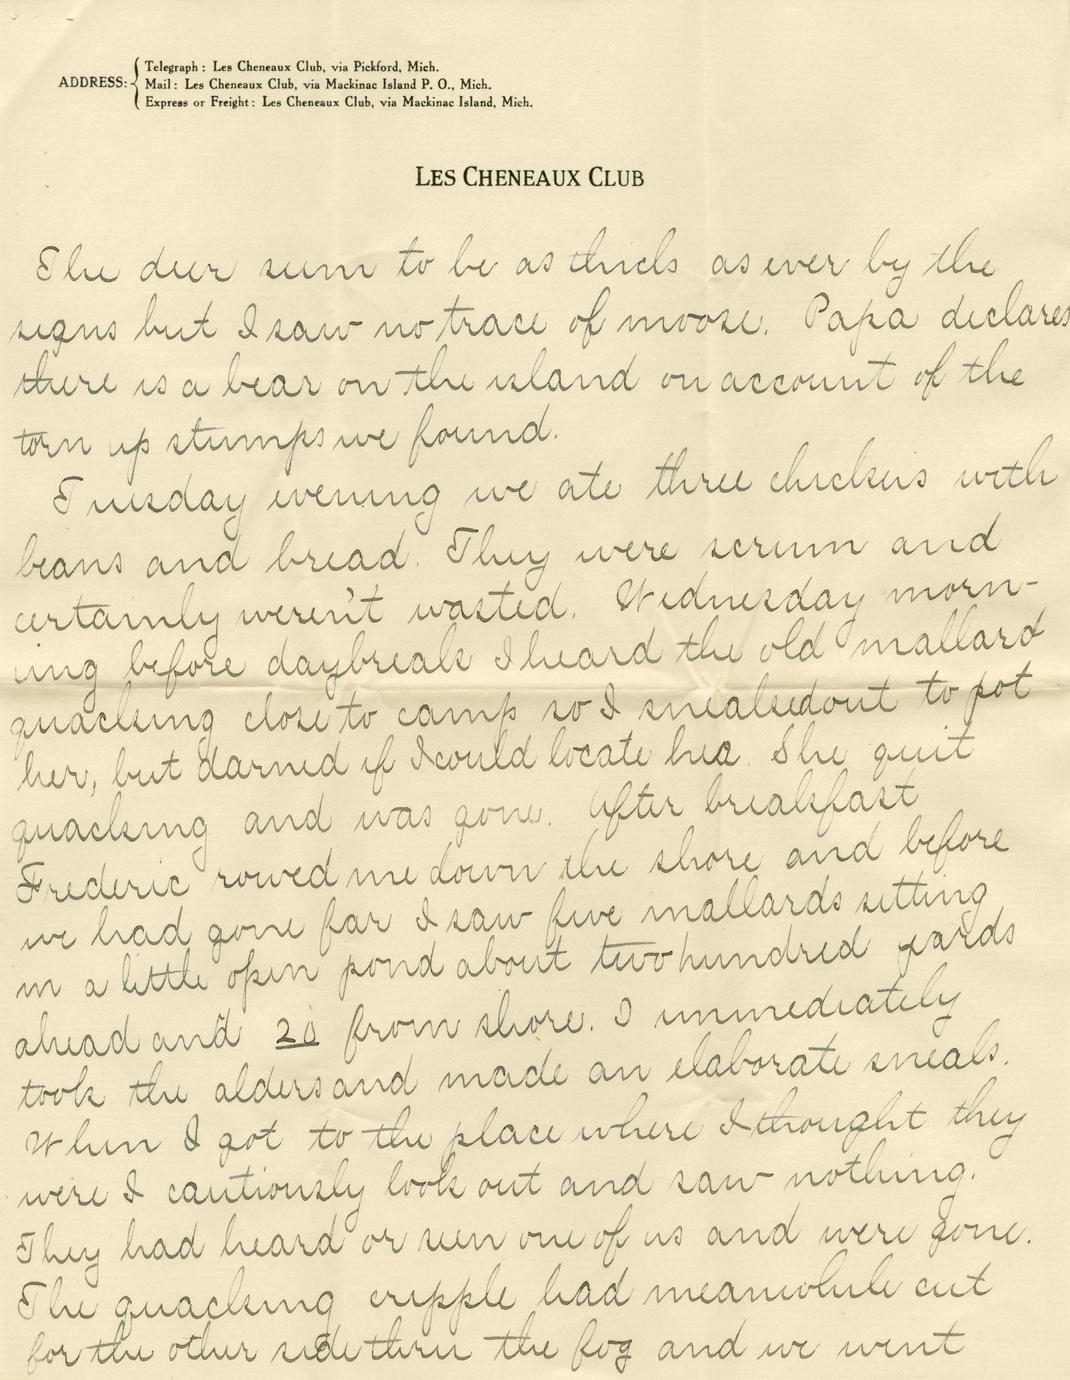 ADDRESS:
Telegraph: Les Cheneaux Club, via Pickford, Mich.
Mail: Les Cheneaux Club, via Mackinac Island P. O., Mich.
Express or Freight: Les Cheneaux Club, via Mackinac Island, Mich.
LES CHENEAUX CLUB
The deer seem to be as thick as ever by the
signs but I saw no trace of moose. Papa declares
there is a bear on the island on account of the
torn up stumps we found.
Tuesday evening we ate three chickens with
beans and bread. They were scrum and
certainly weren't wasted. Wednesday morn-
ing before daybreak I heard the old mallard
quacking close to camp so I sneaked out to pot
her, but darned if I could locate her. She quit
quacking and was gone. After breakfast
Frederic rowed me down the shore and before
we had gone far I saw five mallards sitting
in a little open pond about two hundred yards
ahead and 20 from shore. I immediately
took the alders and made an elaborate sneak.
When I got to the place where I thought they
were I cautiously look out and saw nothing.
They had heard or seen one of us and were gone.
The quacking cripple had meanwhile cut
for the other side thru the fog and we went